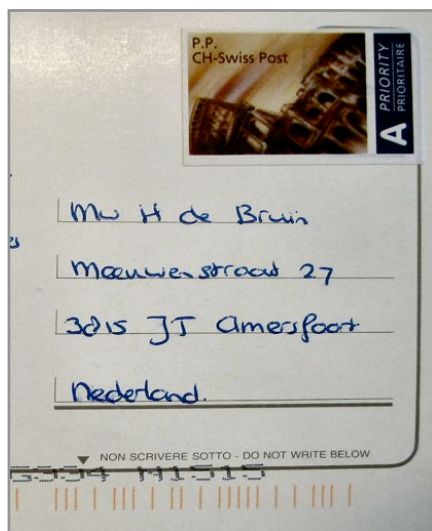 P.P.
CH-Swiss Post
A PRIORITY
PRIORITAIRE
Mw H de Bruin
Meeuwenstraat 27
3815 JT Amersfoort
Nederland.
NON SCRIVERE SOTTO - DO NOT WRITE BELOW